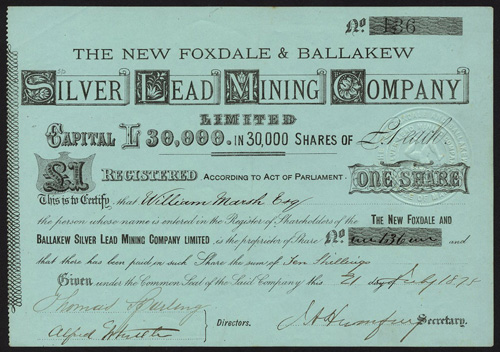 No 136
THE NEW FOXDALE & BALLAKEW
SILVER LEAD MINING COMPANY
LIMITED
CAPITAL £30,000. IN 30,000 SHARES OF £1 each.
£1 REGISTERED ACCORDING TO ACT OF PARLIAMENT. ONE SHARE
This is to Certify, that William Marsh Esq
the person whose name is entered in the Register of Shareholders of the THE NEW FOXDALE AND
BALLAKEW SILVER LEAD MINING COMPANY LIMITED is the proprietor of Share No 136 and
that there has been paid in such Share the sum of Ten Shillings
Given under the Common Seal of the Said Company this 21 day of July 1874
Thomas
Alfred
Directors. Secretary.